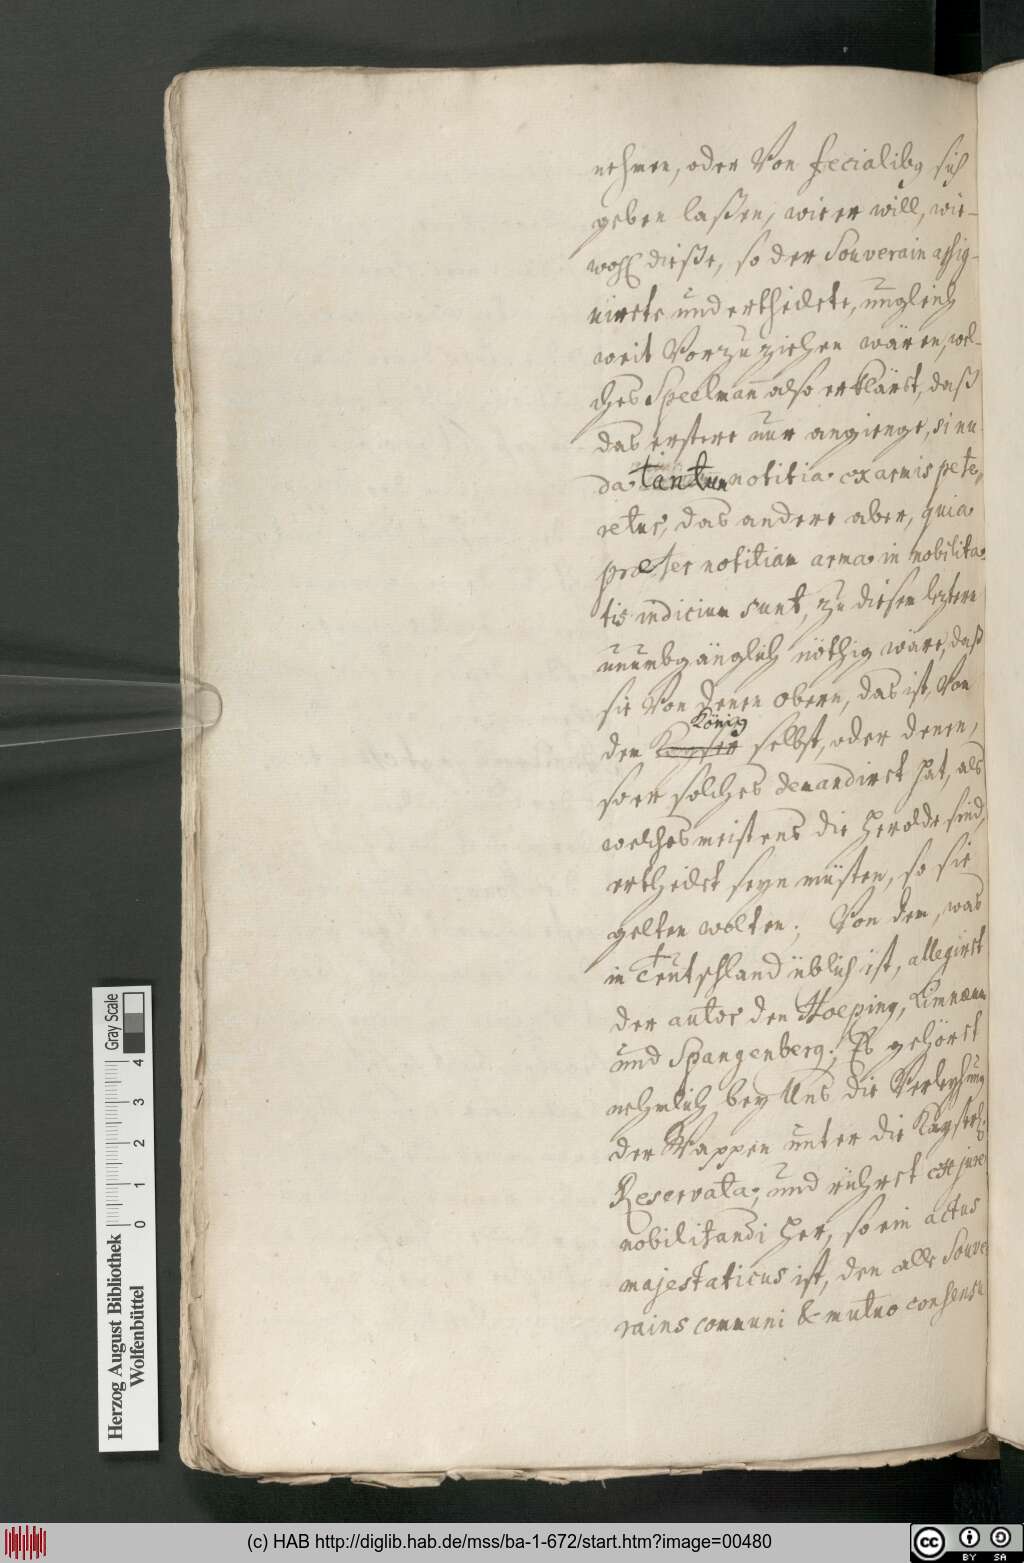 nehmen, oder Von fecialibꝯ sich
geben laßen, wie er will, wie-
wohl dieße, so der Souverain assig-
nirete und ertheilete, ungleich
weit Vorzuziehen wären, wel-
ches Speelmañ also erklärt, daß
das erstere nur angienge, si nu
da tantum notitia ex armis pete,
retur, das andere aber, quia
præter notitiam arma in nobilita-
tis indicium sunt, zu diesem leztern
unumbgänglich nöthig wäre, daß
sie Von denen obern, das ist, Von
König
dem Kayser selbst, oder denen,
so er solches demandiret hat, als
welches meistens die Herolde sind,
ertheilet seyn müsten, so sie
gelten wolten; Von dem, was
in Teutschland üblich ist, allegiret
der autor den Hoeping, Limnæum
und Spangenberg; Es gehöret
nehmlich bey Uns die Verleyhung
der Wappen unter die Kayserl.
Reservata; und rühret ex jure
nobilitandi her, so ein actus
majestaticus ist, den alle Souve
rains communi & mutuo consensu
Gray Scale
0 1 2 3 4
Herzog August Bibliothek
Wolfenbüttel
(c) HAB http://diglib.hab.de/mss/ba-1-672/start.htm?image=00480
cc BY SA